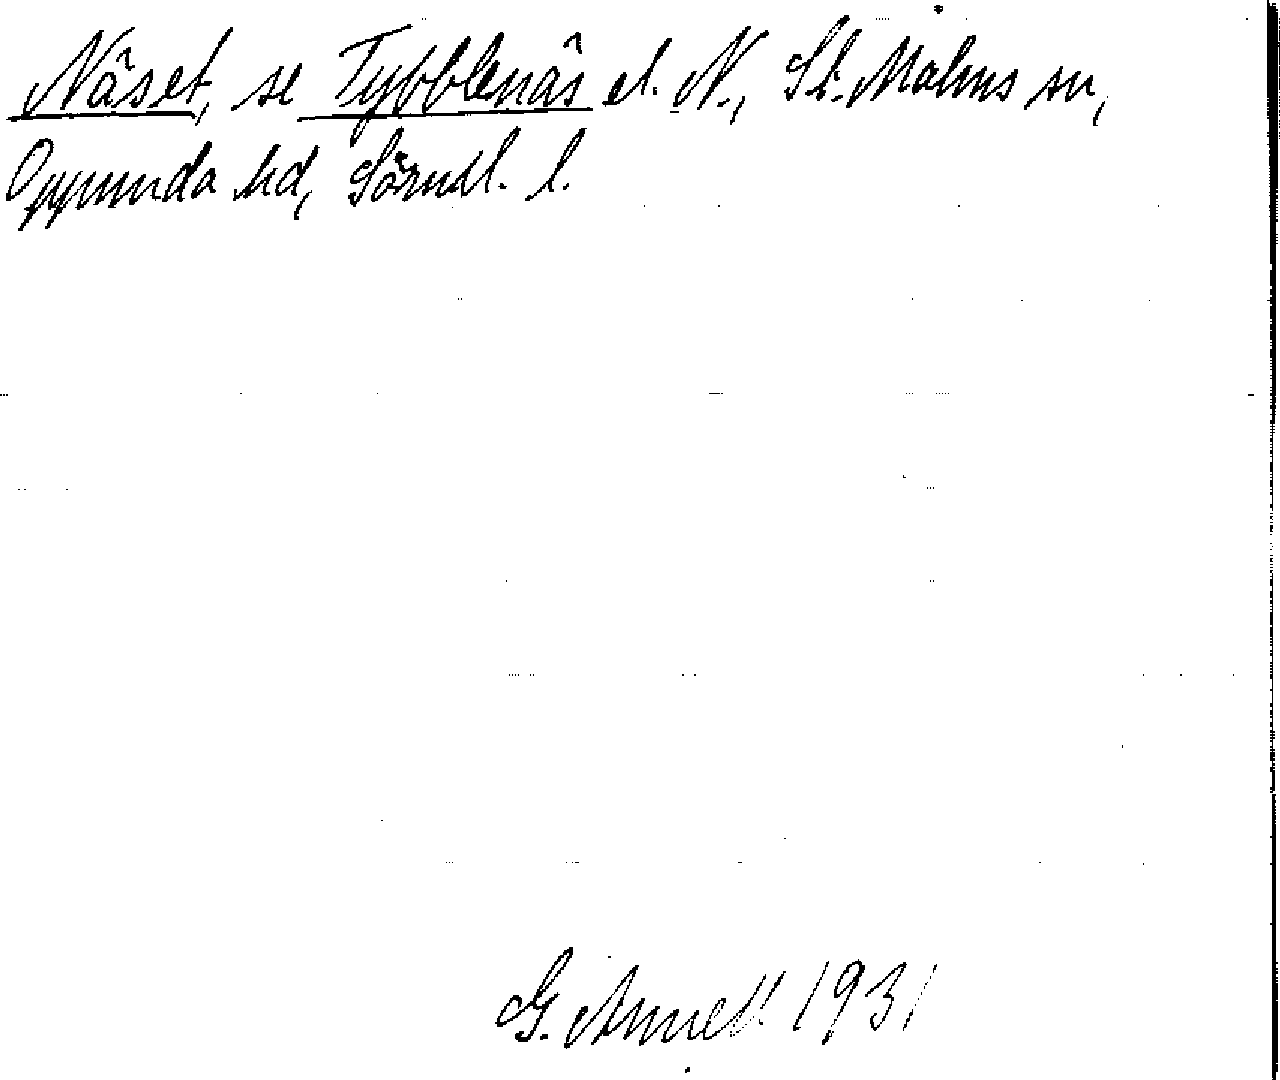 Näset, se Tybblenäs el. N., St. Malms sn,
Oppunda hd, Sörml. l.
G. Annell 1931